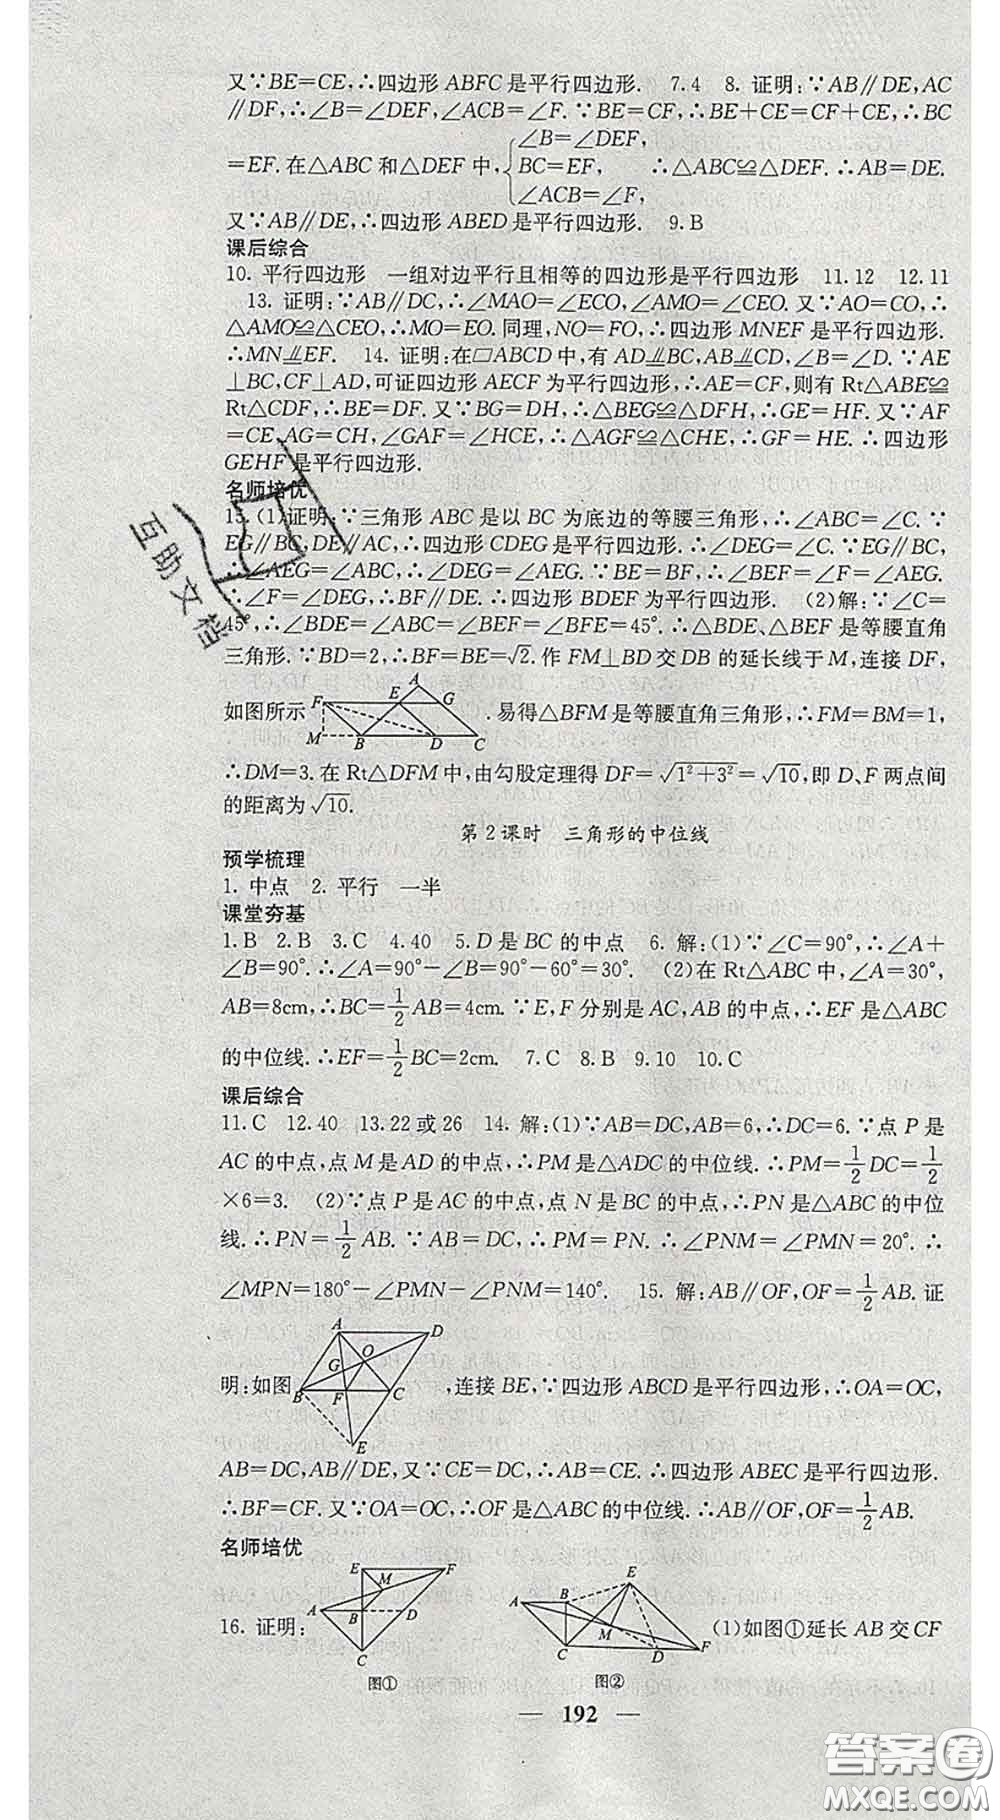 又∵BE=CE,∴四边形 ABFC 是平行四边形. 7.4 8. 证明:∵AB∥DE,AC
∥DF,∴∠B=∠DEF,∠ACB=∠F.∵BE=CF,∴BE+CE=CF+CE,∴BC
=EF.在△ABC 和△DEF 中,{∠B=∠DEF, BC=EF, ∠ACB=∠F, ∴△ABC≌△DEF.∴AB=DE.
又∵AB∥DE,∴四边形 ABED 是平行四边形. 9.B
课后综合
10. 平行四边形 一组对边平行且相等的四边形是平行四边形 11.12 12.11
13. 证明:∵AB∥DC,∴∠MAO=∠ECO,∠AMO=∠CEO.又∵AO=CO,∴
△AMO≌△CEO,∴MO=EO.同理,NO=FO,∴四边形 MNEF 是平行四边形.
∴MN⫽EF. 14. 证明:在▱ABCD 中,有 AD⫽BC,AB⫽CD,∠B=∠D.∵AE
⊥BC,CF⊥AD,可证四边形 AECF 为平行四边形,∴AE=CF,则有 Rt△ABE≌
Rt△CDF,∴BE=DF.又∵BG=DH,∴△BEG≌△DFH,∴GE=HF.又∵AF
=CE,AG=CH,∠GAF=∠HCE,∴△AGF≌△CHE,∴GF=HE.∴四边形
GEHF 是平行四边形.
名师培优
15.(1)证明:∵三角形 ABC 是以 BC 为底边的等腰三角形,∴∠ABC=∠C.∵
EG∥BC,DE∥AC,∴四边形 CDEG 是平行四边形.∴∠DEG=∠C.∵EG∥BC,
∴∠AEG=∠ABC,∴∠DEG=∠AEG.∵BE=BF,∴∠BEF=∠F=∠AEG.
∴∠F=∠DEG,∴BF∥DE.∴四边形 BDEF 为平行四边形. (2)解:∵∠C=
45°,∴∠BDE=∠ABC=∠BEF=∠BFE=45°.∴△BDE、△BEF 是等腰直角
三角形.∵BD=2,∴BF=BE=√2.作 FM⊥BD 交 DB 的延长线于 M,连接 DF,
如图所示 A F E G M B D C .易得△BFM 是等腰直角三角形,∴FM=BM=1,
∴DM=3.在 Rt△DFM 中,由勾股定理得 DF=√(1²+3²)=√10,即 D、F 两点间
的距离为√10.
第 2 课时 三角形的中位线
预学梳理
1. 中点 2. 平行 一半
课堂夯基
1.B 2.B 3.C 4.40 5.D 是 BC 的中点 6. 解:(1)∵∠C=90°,∴∠A+
∠B=90°.∴∠A=90°-∠B=90°-60°=30°. (2)在 Rt△ABC 中,∠A=30°,
AB=8cm,∴BC=1/2AB=4cm.∵E,F 分别是 AC,AB 的中点,∴EF 是△ABC
的中位线.∴EF=1/2BC=2cm. 7.C 8.B 9.10 10.C
课后综合
11.C 12.40 13.22 或 26 14. 解:(1)∵AB=DC,AB=6,∴DC=6.∵点 P 是
AC 的中点,点 M 是 AD 的中点,∴PM 是△ADC 的中位线.∴PM=1/2DC=1/2
×6=3. (2)∵点 P 是 AC 的中点,点 N 是 BC 的中点,∴PN 是△ABC 的中位
线.∴PN=1/2AB.∵AB=DC,∴PM=PN.∴∠PNM=∠PMN=20°.∴
∠MPN=180°-∠PMN-∠PNM=140°. 15. 解:AB∥OF,OF=1/2AB.证
明:如图 A D O G B F C E ,连接 BE,∵四边形 ABCD 是平行四边形,∴OA=OC,
AB=DC,AB∥DE,又∵CE=DC,∴AB=CE.∴四边形 ABEC 是平行四边形.
∴BF=CF.又∵OA=OC,∴OF 是△ABC 的中位线.∴AB∥OF,OF=1/2AB.
名师培优
16. 证明: E F M A B D C 图① E A B M C D F 图② (1)如图①延长 AB 交 CF
192
互助文档
答案圈
MXQE.COM